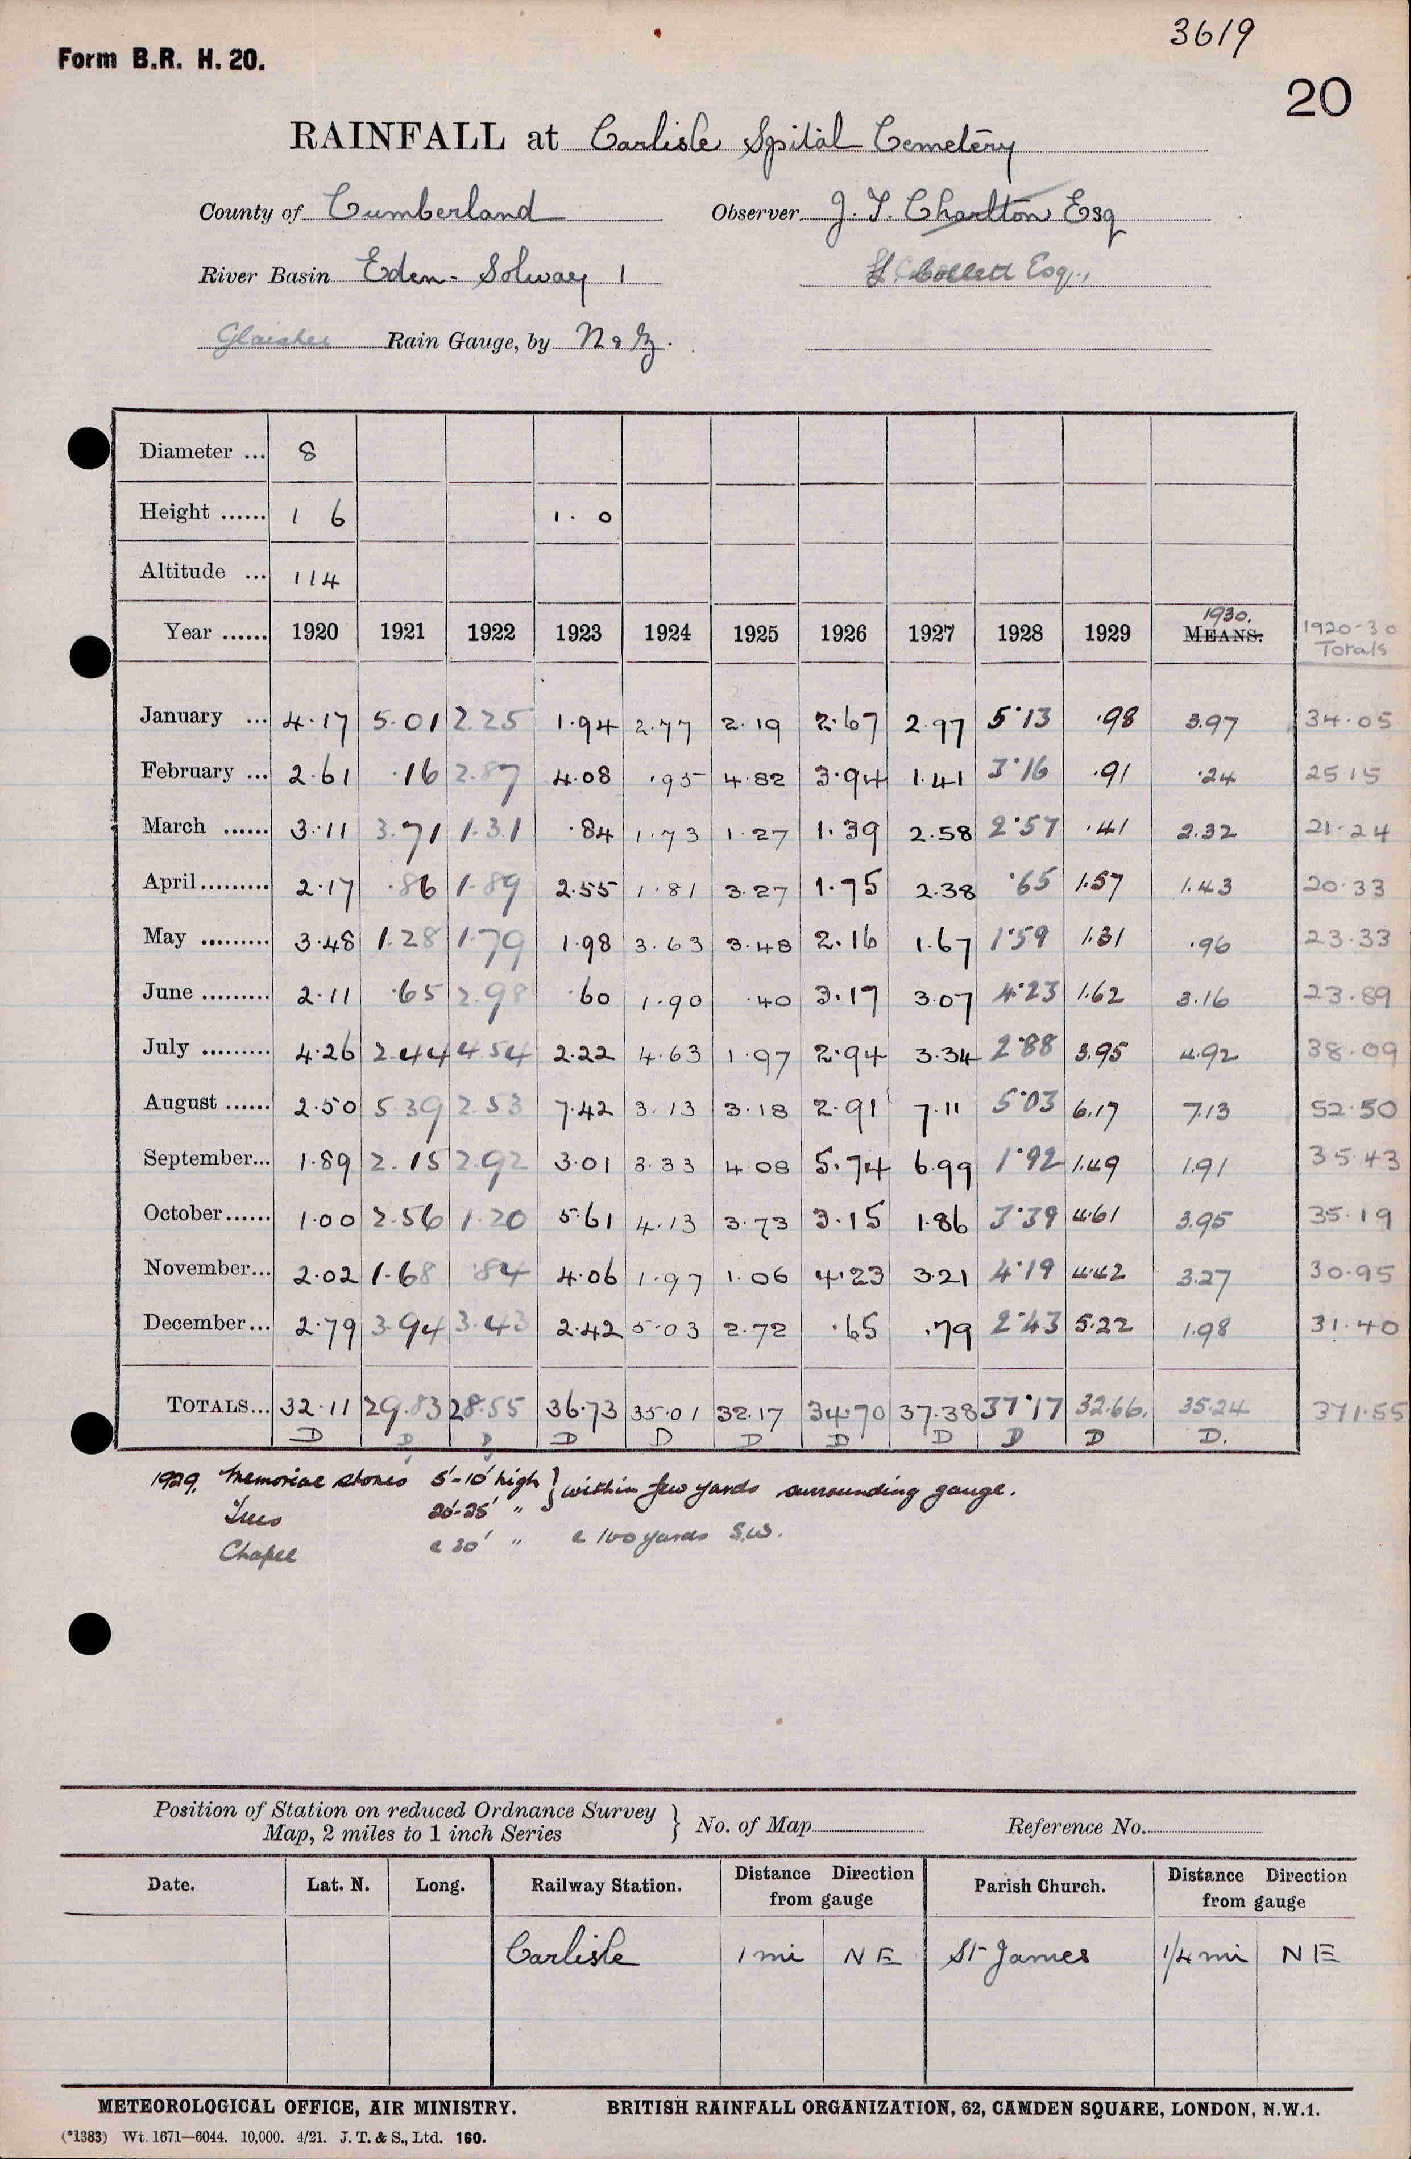 3619
Form B.R. H. 20.
20
RAINFALL at Carlisle Spital Cemetery
County of Cumberland Observer J. T. Charlton Esq
River Basin Eden - Solway 1 Collett Esq.,
Glaisher Rain Gauge, by N & Z.
Diameter ... 8
Height ...... 1 6 1. 0
Altitude ... 114
Year ...... 1920 1921 1922 1923 1924 1925 1926 1927 1928 1929 MEANS. 1930. 1920-30 Totals
January ... 4.17 5.01 2.25 1.94 2.77 2.19 2.67 2.97 5.13 .98 3.97 34.05
February ... 2.61 .16 2.87 4.08 .95 4.82 3.94 1.41 3.16 .91 .24 25 15
March ...... 3.11 3.71 1.31 .84 1.73 1.27 1.39 2.58 2.57 .41 2.32 21.24
April ......... 2.17 .86 1.89 2.55 1.81 3.27 1.75 2.38 .65 1.57 1.43 20.33
May ......... 3.48 1.28 1.79 1.98 3.63 3.48 2.16 1.67 1.59 1.31 .96 23.33
June ......... 2.11 .65 2.98 .60 1.90 .40 3.17 3.07 4.23 1.62 3.16 23.89
July ......... 4.26 2.44 4.54 2.22 4.63 1.97 2.94 3.34 2.88 3.95 4.92 38.09
August ...... 2.50 5 39 2.53 7.42 3.13 3.18 2.91 7.11 5.03 6.17 7.13 52.50
September... 1.89 2.15 2.92 3.01 3.33 4 08 5.74 6.99 1.92 1.49 1.91 35.43
October...... 1.00 2.56 1.20 5.61 4.13 3.73 3.15 1.86 3.39 4.61 3.95 35.19
November... 2.02 1.68 .84 4.06 1.97 1.06 4.23 3.21 4.19 4.42 3.27 30.95
December... 2.79 3.94 3.43 2.42 5.03 2.72 .65 .79 2.43 5.22 1.98 31.40
TOTALS... 32.11 29.83 28.55 36.73 35.01 32.17 34.70 37.38 37.17 32.66. 35.24 371.55
D D D D D D D D D D D.
1929. Memorial stones 5'-10' high } within few yards surrounding gauge.
Trees 20'-25' "
Chapel c 30' " c 100 yards S.W.
Position of Station on reduced Ordnance Survey Map, 2 miles to 1 inch Series } No. of Map Reference No.
Date. Lat. N. Long. Railway Station. Distance Direction from gauge Parish Church. Distance Direction from gauge
Carlisle 1 mi NE St James 1/4 mi NE
METEOROLOGICAL OFFICE, AIR MINISTRY. BRITISH RAINFALL ORGANIZATION, 62, CAMDEN SQUARE, LONDON, N.W.1.
(*1383) Wt. 1671—6044. 10,000. 4/21. J. T. & S., Ltd. 160.